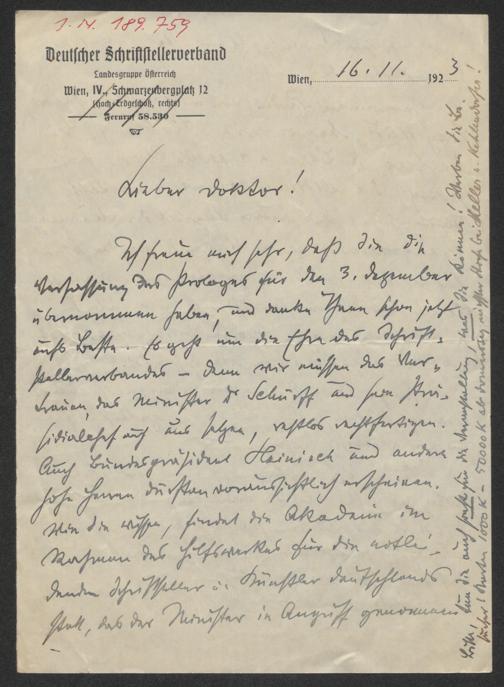 I. N. 189.759
Deutscher Schriftstellerverband
Landesgruppe Österreich
Wien, IV., Schwarzenbergplatz 12
(Hoch-Erdgeschoß, rechts)
Fernruf 58.530
Wien, 16. 11. 1923
Lieber Doktor!
Ich freue mich sehr, daß Sie die
Verfassung des Prologes für den 3. Dezember
übernommen haben, und danke Ihnen schon jetzt
aufs Beste. Es geht um die Ehre des Schrift-
stellerverbandes – denn wir müssen das Ver-
trauen, das Minister Dr Schürff und sein Prä-
sidialchef auf uns setzen, restlos rechtfertigen.
Auch Bundespräsident Hainisch und andere
hohe Herren dürften voraussichtlich erscheinen.
Wie Sie wissen, findet die Akademie im
Rahmen des Hilfswerkes für die notlei-
denden Schriftsteller u. Künstler Deutschlands
statt, das der Minister in Angriff genommen
Bitte, tun Sie auch für die Veranstaltung, was Sie können! Werben Sie Be-
sucher! Karten 1000 K – 50000 K ab Donnerstag